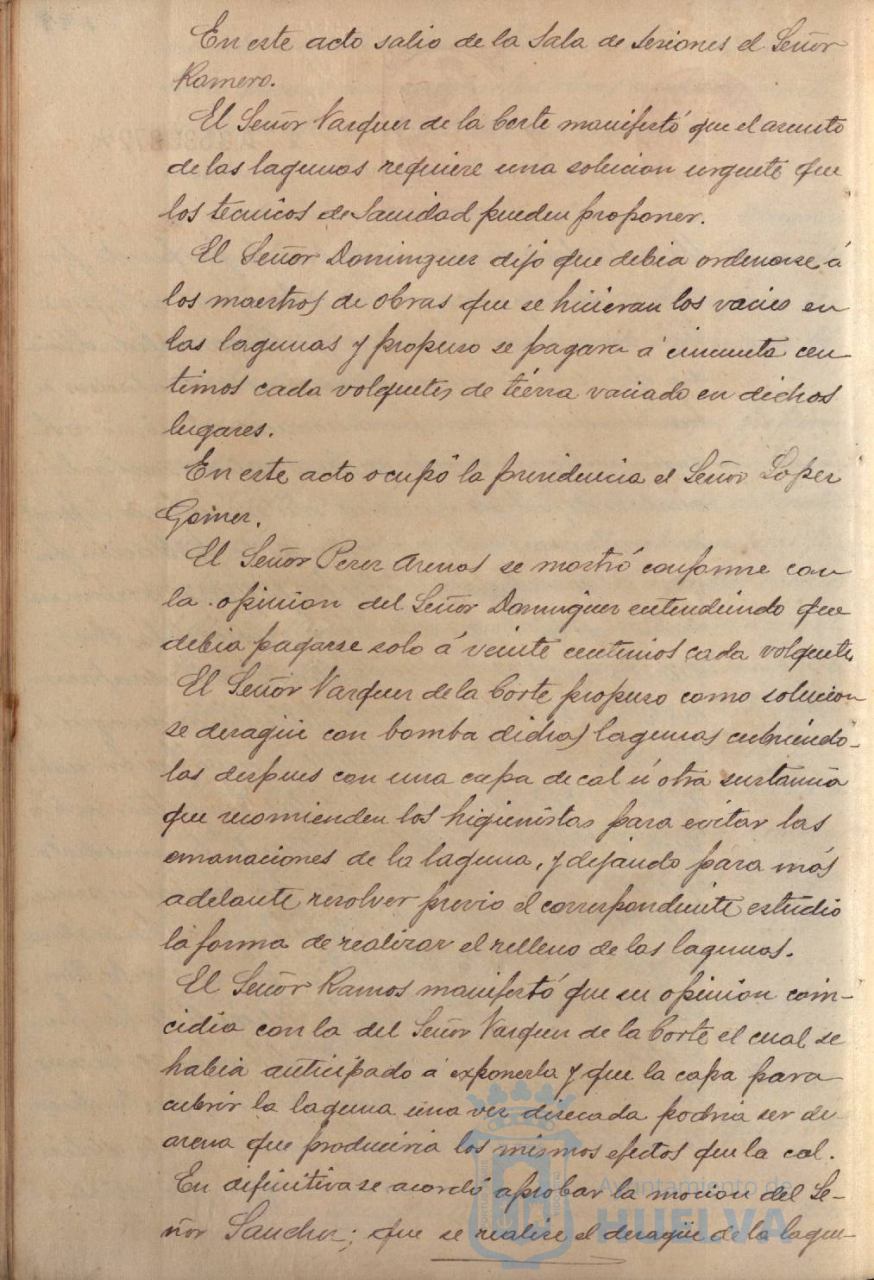 En este acto salio de la Sala de Sesiones el Señor
Romero.
El Señor Vazquez de la Corte manifestó que el asunto
de las lagunas requiere una solucion urgente que
los tecnicos de Sanidad pueden proponer.
El Señor Dominguez dijo que debia ordenarse á
los maestros de obras que se hicieran los vacies en
las lagunas y propuso se pagara á cincuenta cen
timos cada volquetes de tierra vaciado en dichos
lugares.
En este acto ocupó la presidencia el Señor Lopez
Gomez.
El Señor Perez Arenas se mostró conforme con
la opinion del Señor Dominguez entendiendo que
debia pagarse solo á veinte centimos cada volquete,
El Señor Vazquez de la Corte propuso como solucion
se desagüe con bomba dichas lagunas cubriendo-
las despues con una capa de cal ú otra sustancia
que recomienden los higienistas para evitar las
emanaciones de la laguna, y dejando para más
adelante resolver previo el correspondiente estudio
la forma de realizar el relleno de las lagunas.
El Señor Ramos manifestó que su opinion coin-
cidia con la del Señor Vazquez de la Corte el cual se
habia anticipado á exponerla y que la capa para
cubrir la laguna una vez disecada podria ser de
arena que produciria los mismos efectos que la cal.
En difinitiva se acordó aprobar la mocion del Se-
ñor Sanchez; que se realize el desagüe de la lagu-
Ayuntamiento de
HUELVA